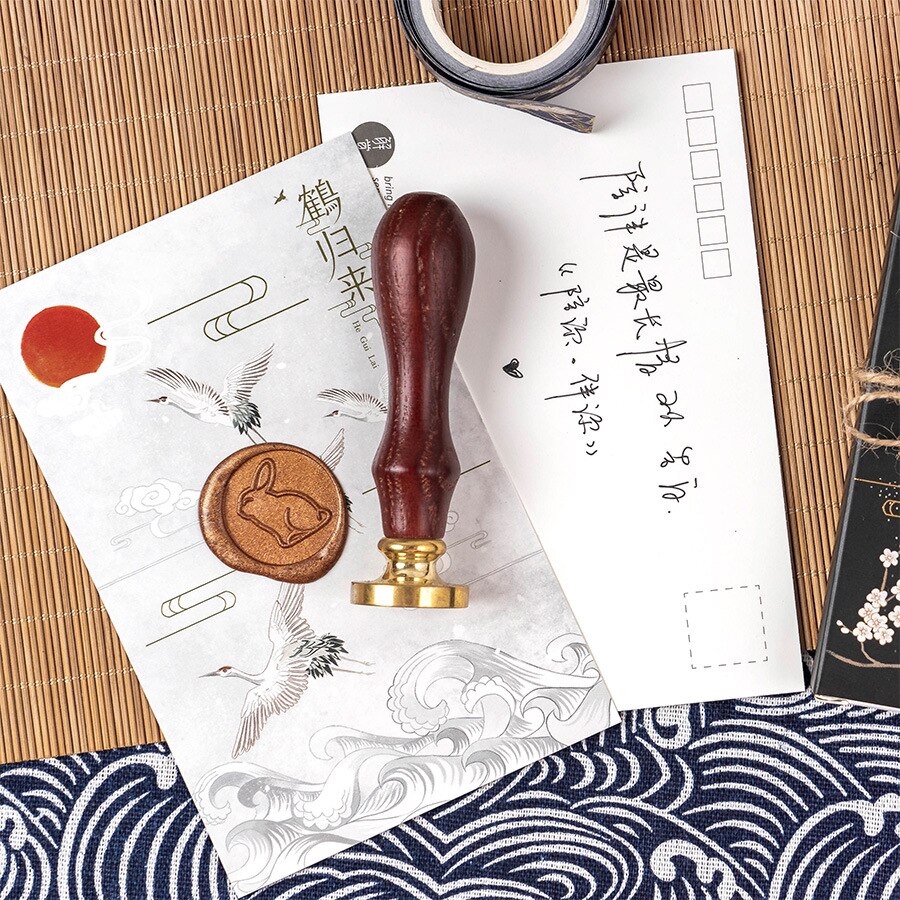 鶴归来
He Gui Lai
bring
陪伴是最长情的告白
《陪你·伴你》